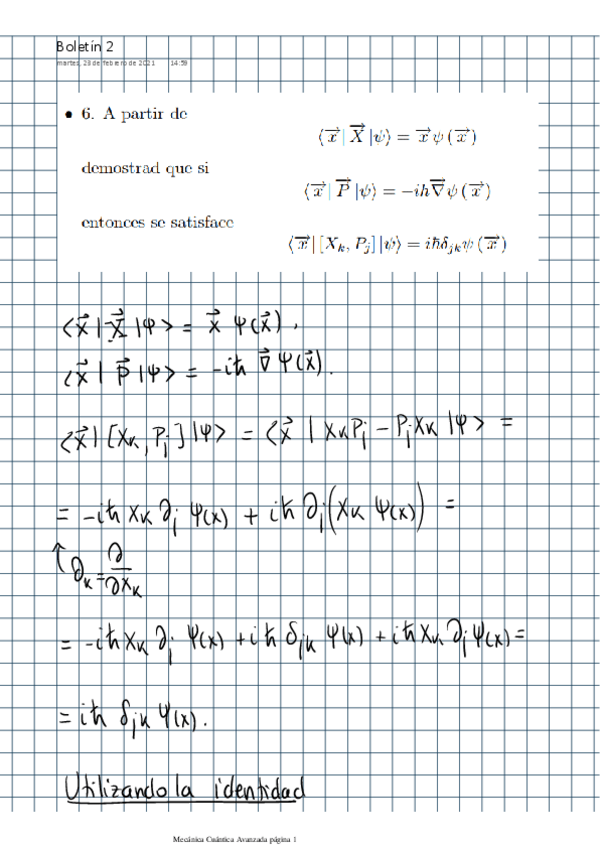 Boletín 2
martes, 23 de febrero de 2021 14:59
• 6. A partir de
⟨x⃗| X⃗ |ψ⟩ = x⃗ ψ(x⃗)
demostrad que si
⟨x⃗| P⃗ |ψ⟩ = -iħ∇⃗ψ(x⃗)
entonces se satisface
⟨x⃗| [X_k, P_j] |ψ⟩ = iħδ_{jk}ψ(x⃗)
⟨x⃗| X⃗ |ψ⟩ = x⃗ ψ(x⃗).
⟨x⃗| P⃗ |ψ⟩ = -iħ ∇⃗ ψ(x⃗).
⟨x⃗| [X_k, P_j] |ψ⟩ = ⟨x⃗ | X_k P_j - P_j X_k |ψ⟩ =
= -iħ x_k ∂_j ψ(x) + iħ ∂_j (x_k ψ(x)) =
↑ ∂_k = ∂/∂x_k
= -iħ x_k ∂_j ψ(x) + iħ δ_{jk} ψ(x) + iħ x_k ∂_j ψ(x) =
= iħ δ_{jk} ψ(x).
Utilizando la identidad
Mecánica Cuántica Avanzada página 1